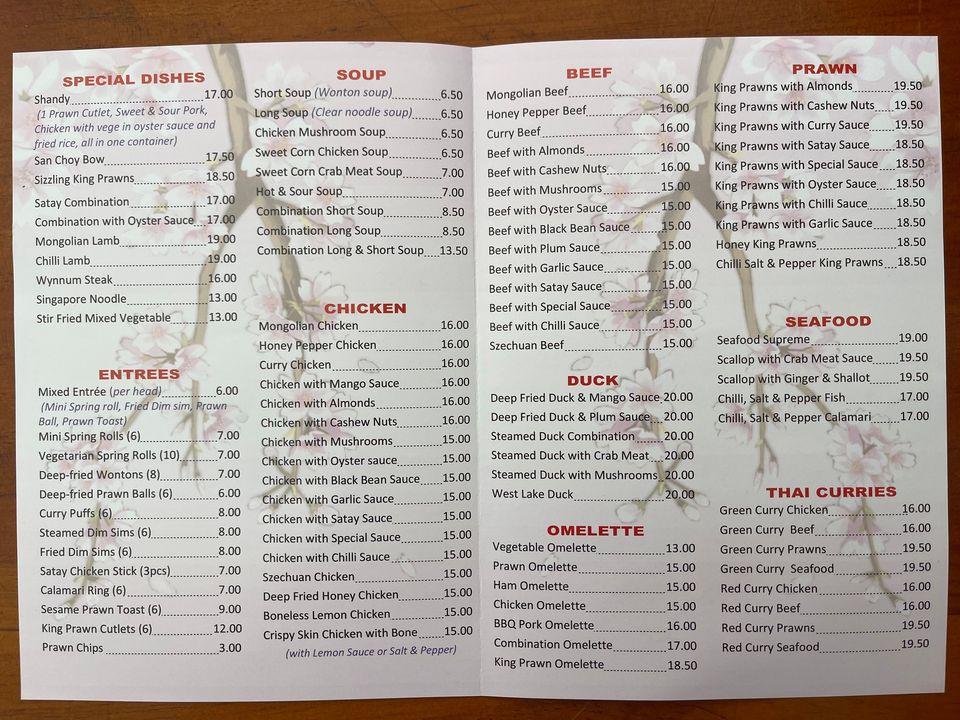 SPECIAL DISHES
Shandy 17.00
(1 Prawn Cutlet, Sweet & Sour Pork,
Chicken with vege in oyster sauce and
fried rice, all in one container)
San Choy Bow 17.50
Sizzling King Prawns 18.50
Satay Combination 17.00
Combination with Oyster Sauce 17.00
Mongolian Lamb 19.00
Chilli Lamb 19.00
Wynnum Steak 16.00
Singapore Noodle 13.00
Stir Fried Mixed Vegetable 13.00
ENTREES
Mixed Entrée (per head) 6.00
(Mini Spring roll, Fried Dim sim, Prawn
Ball, Prawn Toast)
Mini Spring Rolls (6) 7.00
Vegetarian Spring Rolls (10) 7.00
Deep-fried Wontons (8) 7.00
Deep-fried Prawn Balls (6) 6.00
Curry Puffs (6) 8.00
Steamed Dim Sims (6) 8.00
Fried Dim Sims (6) 8.00
Satay Chicken Stick (3pcs) 7.00
Calamari Ring (6) 7.00
Sesame Prawn Toast (6) 9.00
King Prawn Cutlets (6) 12.00
Prawn Chips 3.00
SOUP
Short Soup (Wonton soup) 6.50
Long Soup (Clear noodle soup) 6.50
Chicken Mushroom Soup 6.50
Sweet Corn Chicken Soup 6.50
Sweet Corn Crab Meat Soup 7.00
Hot & Sour Soup 7.00
Combination Short Soup 8.50
Combination Long Soup 8.50
Combination Long & Short Soup 13.50
CHICKEN
Mongolian Chicken 16.00
Honey Pepper Chicken 16.00
Curry Chicken 16.00
Chicken with Mango Sauce 16.00
Chicken with Almonds 16.00
Chicken with Cashew Nuts 16.00
Chicken with Mushrooms 15.00
Chicken with Oyster sauce 15.00
Chicken with Black Bean Sauce 15.00
Chicken with Garlic Sauce 15.00
Chicken with Satay Sauce 15.00
Chicken with Special Sauce 15.00
Chicken with Chilli Sauce 15.00
Szechuan Chicken 15.00
Deep Fried Honey Chicken 15.00
Boneless Lemon Chicken 15.00
Crispy Skin Chicken with Bone 15.00
(with Lemon Sauce or Salt & Pepper)
BEEF
Mongolian Beef 16.00
Honey Pepper Beef 16.00
Curry Beef 16.00
Beef with Almonds 16.00
Beef with Cashew Nuts 16.00
Beef with Mushrooms 15.00
Beef with Oyster Sauce 15.00
Beef with Black Bean Sauce 15.00
Beef with Plum Sauce 15.00
Beef with Garlic Sauce 15.00
Beef with Satay Sauce 15.00
Beef with Special Sauce 15.00
Beef with Chilli Sauce 15.00
Szechuan Beef 15.00
DUCK
Deep Fried Duck & Mango Sauce 20.00
Deep Fried Duck & Plum Sauce 20.00
Steamed Duck Combination 20.00
Steamed Duck with Crab Meat 20.00
Steamed Duck with Mushrooms 20.00
West Lake Duck 20.00
OMELETTE
Vegetable Omelette 13.00
Prawn Omelette 15.00
Ham Omelette 15.00
Chicken Omelette 15.00
BBQ Pork Omelette 16.00
Combination Omelette 17.00
King Prawn Omelette 18.50
PRAWN
King Prawns with Almonds 19.50
King Prawns with Cashew Nuts 19.50
King Prawns with Curry Sauce 19.50
King Prawns with Satay Sauce 18.50
King Prawns with Special Sauce 18.50
King Prawns with Oyster Sauce 18.50
King Prawns with Chilli Sauce 18.50
King Prawns with Garlic Sauce 18.50
Honey King Prawns 18.50
Chilli Salt & Pepper King Prawns 18.50
SEAFOOD
Seafood Supreme 19.00
Scallop with Crab Meat Sauce 19.50
Scallop with Ginger & Shallot 19.50
Chilli, Salt & Pepper Fish 17.00
Chilli, Salt & Pepper Calamari 17.00
THAI CURRIES
Green Curry Chicken 16.00
Green Curry Beef 16.00
Green Curry Prawns 19.50
Green Curry Seafood 19.50
Red Curry Chicken 16.00
Red Curry Beef 16.00
Red Curry Prawns 19.50
Red Curry Seafood 19.50